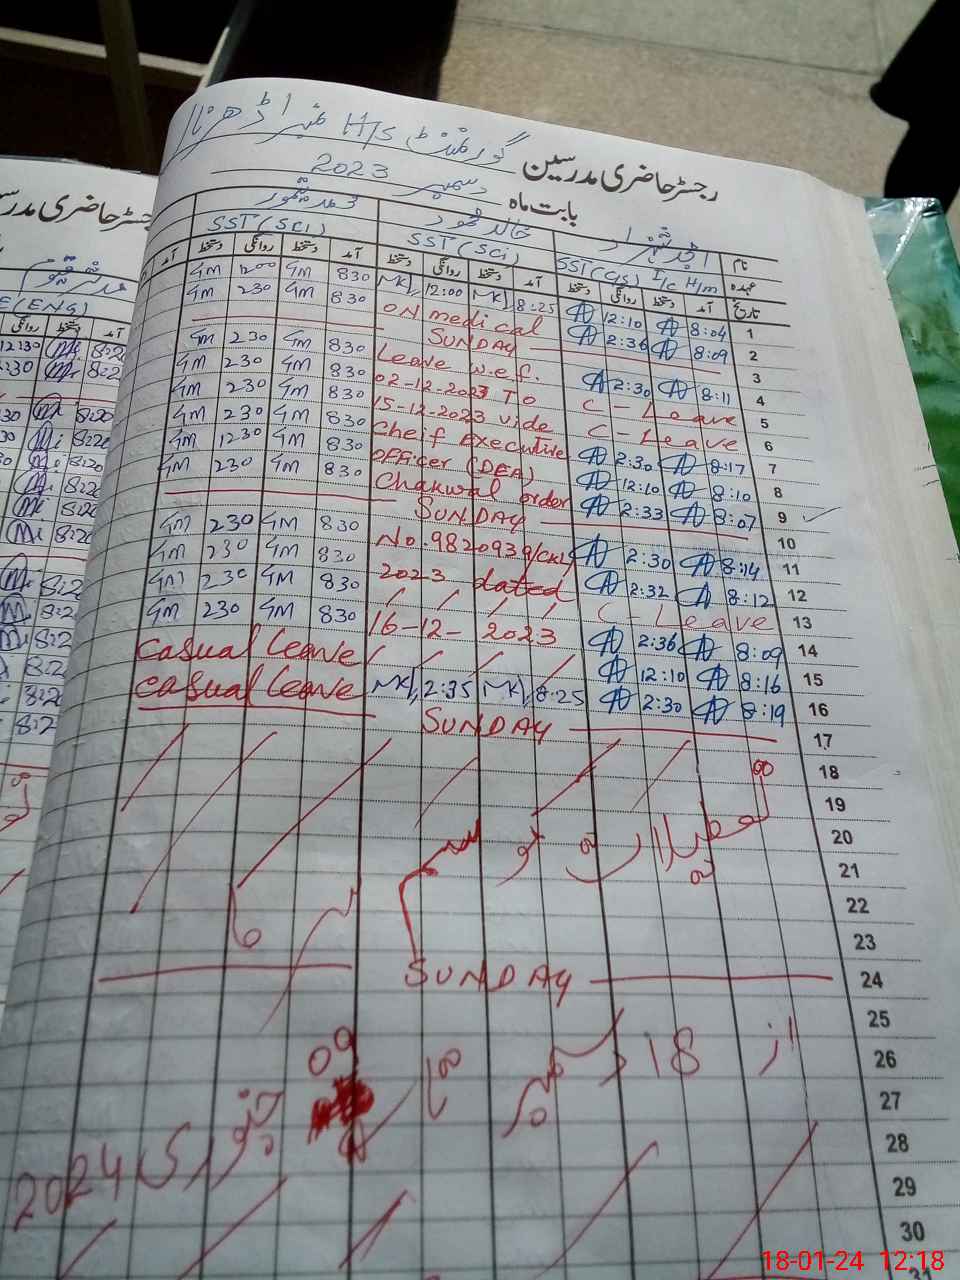 گورنمنٹ H/S نمبر 1 ڈھرنال
رجسٹر حاضری مدرسین
بابت ماہ دسمبر 2023
نام
خالد محمود
عہدہ SST(GS) I/c H/m SST(Sci) SST(SCI)
تاریخ آمد دستخط روانگی دستخط آمد دستخط روانگی دستخط آمد دستخط روانگی دستخط
1 8:04 12:10 8:25 MK 12:00 MK 830 GM 1200 GM
2 8:09 2:36 ON medical 830 GM 230 GM
3 SUNDAY
4 8:11 2:30 Leave w.e.f. 830 GM 230 GM
5 C-Leave 02-12-2023 To 830 GM 230 GM
6 C-Leave 15-12-2023 vide 830 GM 230 GM
7 8:17 2:30 Cheif Executive 830 GM 230 GM
8 8:10 12:10 Officer (DEA) 830 GM 1230 GM
9 8:07 2:33 Chakwal order 830 GM 230 GM
10 SUNDAY
11 8:14 2:30 No. 9820939/CKL 830 GM 230 GM
12 8:12 2:32 2023 dated 830 GM 230 GM
13 C-Leave 830 GM 230 GM
14 8:09 2:36 16-12-2023 830 GM 230 GM
15 8:16 12:10 Casual Leave
16 8:19 2:30 8:25 MK 2:35 MK Casual Leave
17 SUNDAY
18
19
20 تعطیلات موسم
21
22
23
24 SUNDAY
25
26 از 18 دسمبر تا 09
27
28 جنوری 2024
29
30
31
رجسٹر حاضری مدرس
E(ENG)
آمد دستخط روانگی
8:20 12:30
8:20 2:30
8:20
8:20
8:20
8:20
8:20
8:20
18-01-24 12:18